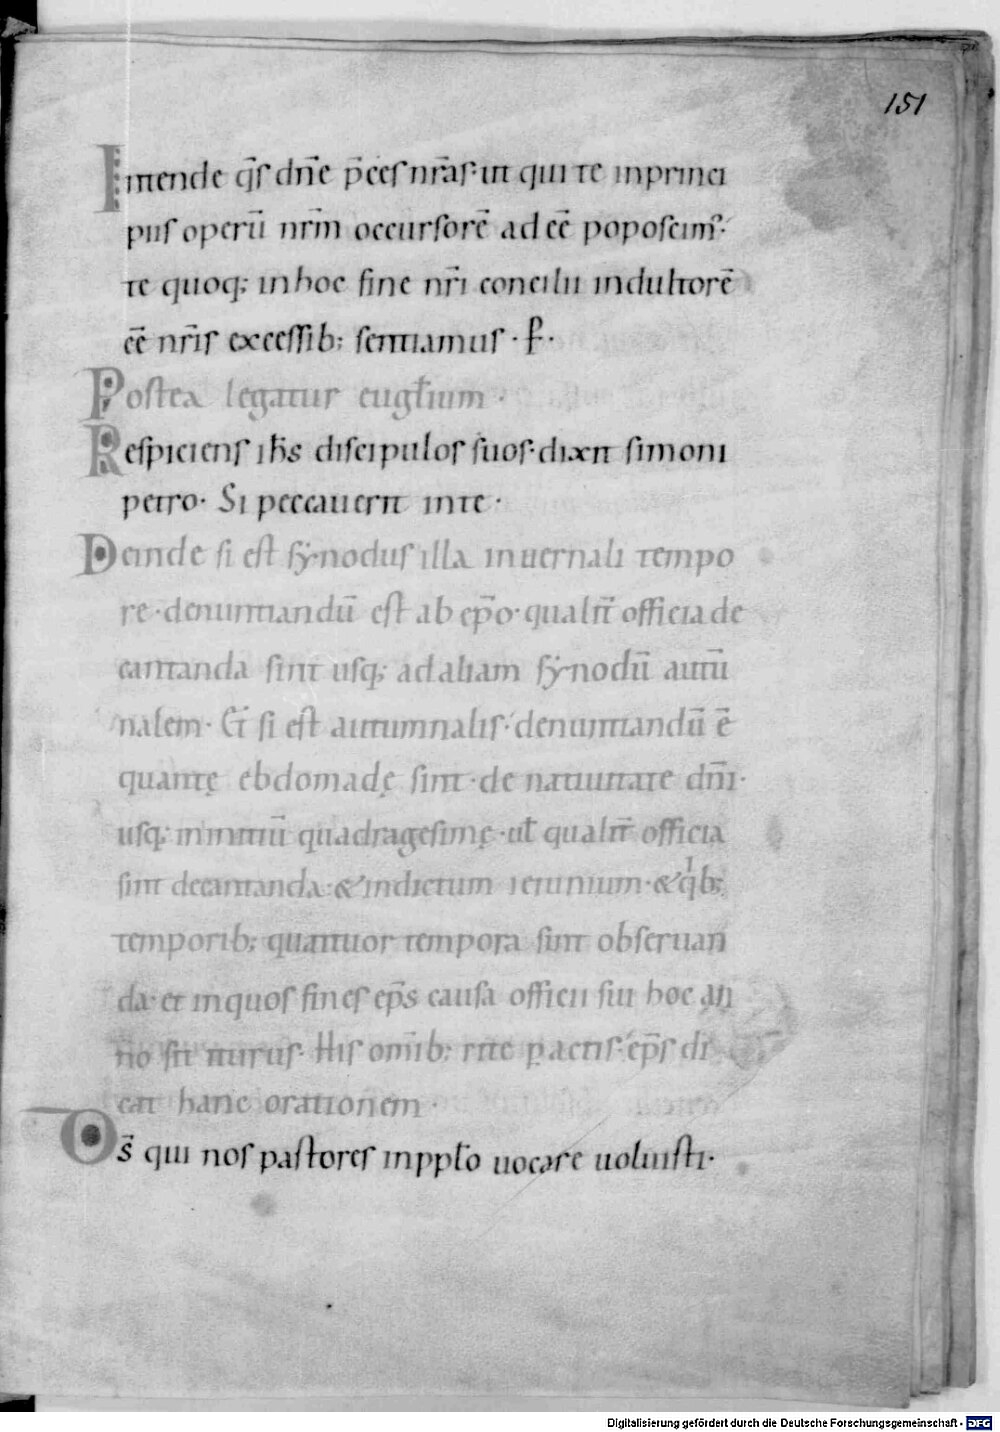 151
Intende q̄s dn̄e p̄ces nr̄as· ut qui te in princi
piis operū nr̄m̄ occursorē ad eē poposcim᷒·
te quoq; in hoc fine nr̄i concilii indultorē
eē nr̄is excessib; sentiamus · P̄ ·
Postea legatur eugl̄ium ·
Respiciens ih̄s discipulos suos· dixit simoni
petro· Si peccauerit in te ·
Deinde si est sẏnodus illa in uernali tempo
re · denuntiandū est ab ep̄o· qualit̄ officia de
cantanda sint usq; ad aliam sẏnodū autū
nalem · Et si est autumnalis· denuntiandū ē
quantę ebdomadę sint · de natiuitate dn̄i·
usq; in initiū quadragesimę · ul̄ qualit̄ officia
sint decantanda· & indictum ieiunium · & qⁱb;
temporib; quattuor tempora sint obseruan
da· et in quos fines ep̄s causa officii sui hoc an
no sit iturus· His om̄ib; rite ꝑactis· ep̄s di
cat hanc orationem ·
Ds̄ qui nos pastores in ppl̄o uocare uoluisti·
Digitalisierung gefördert durch die Deutsche Forschungsgemeinschaft - DFG